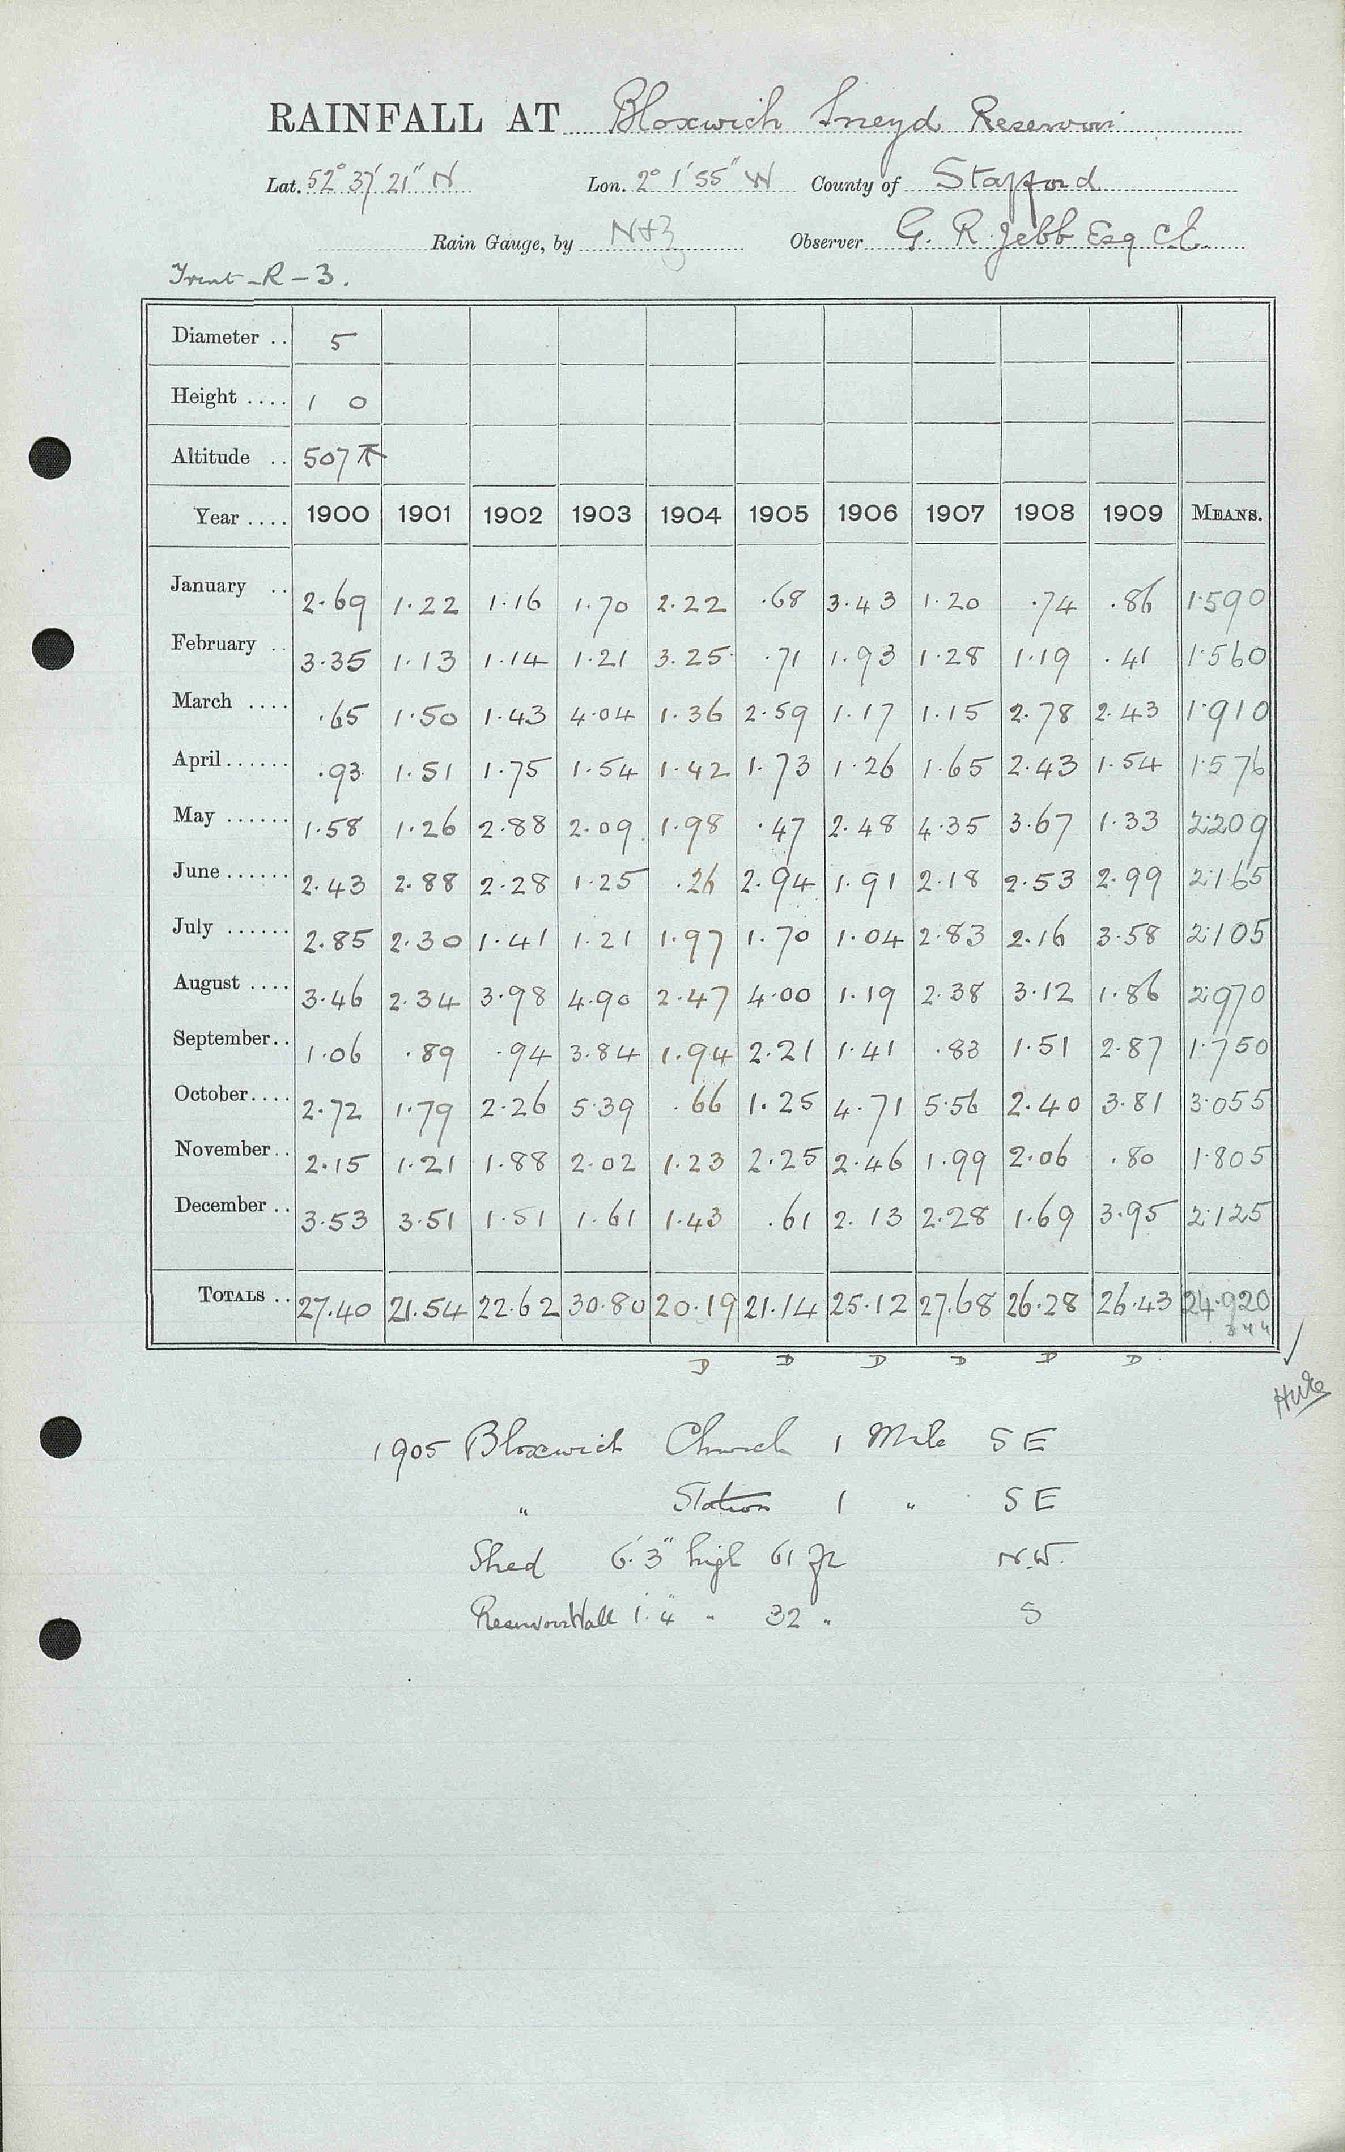 RAINFALL AT Bloxwich Sneyd Reservoir
Lat. 52° 37' 21" N Lon. 2° 1' 55" W County of Stafford
Rain Gauge, by N+Z Observer G. R. Jebb Esq C.E.
Trent - R - 3.
Diameter .. 5
Height .... 1 0
Altitude .. 507
Year .... 1900 1901 1902 1903 1904 1905 1906 1907 1908 1909 MEANS.
January .. 2.69 1.22 1.16 1.70 2.22 .68 3.43 1.20 .74 .86 1.590
February .. 3.35 1.13 1.14 1.21 3.25 .71 1.93 1.28 1.19 .41 1.560
March .... .65 1.50 1.43 4.04 1.36 2.59 1.17 1.15 2.78 2.43 1.910
April ...... .93 1.51 1.75 1.54 1.42 1.73 1.26 1.65 2.43 1.54 1.576
May ...... 1.58 1.26 2.88 2.09 1.98 .47 2.48 4.35 3.67 1.33 2.209
June ...... 2.43 2.88 2.28 1.25 .26 2.94 1.91 2.18 2.53 2.99 2.165
July ...... 2.85 2.30 1.41 1.21 1.97 1.70 1.04 2.83 2.16 3.58 2.105
August .... 3.46 2.34 3.98 4.90 2.47 4.00 1.19 2.38 3.12 1.86 2.970
September .. 1.06 .89 .94 3.84 1.94 2.21 1.41 .83 1.51 2.87 1.750
October .... 2.72 1.79 2.26 5.39 .66 1.25 4.71 5.56 2.40 3.81 3.055
November .. 2.15 1.21 1.88 2.02 1.23 2.25 2.46 1.99 2.06 .80 1.805
December .. 3.53 3.51 1.51 1.61 1.43 .61 2.13 2.28 1.69 3.95 2.125
TOTALS .. 27.40 21.54 22.62 30.80 20.19 21.14 25.12 27.68 26.28 26.43 24.920
D D D D D D
1905 Bloxwich Church 1 Mile SE
" Station 1 " SE
Shed 6' 3" high 61 ft N.W.
Reservoir Wall 1' 4" " 32 " S